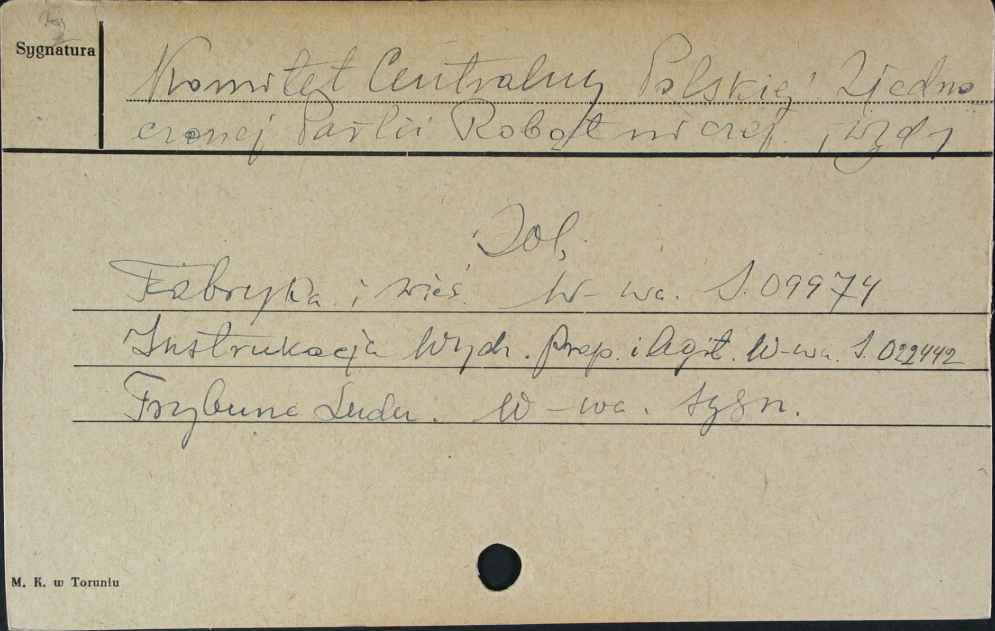 Sygnatura
Komitet Centralny Polskiej Zjedno
czonej Partii Robotniczej. wyd.
Fabryka i wieś. W-wa. S. 09974
Instrukcja Wydz. Prop. i Agit. W-wa. S. 022442
Trybuna Ludu. W-wa. sygn.
M. K. w Toruniu